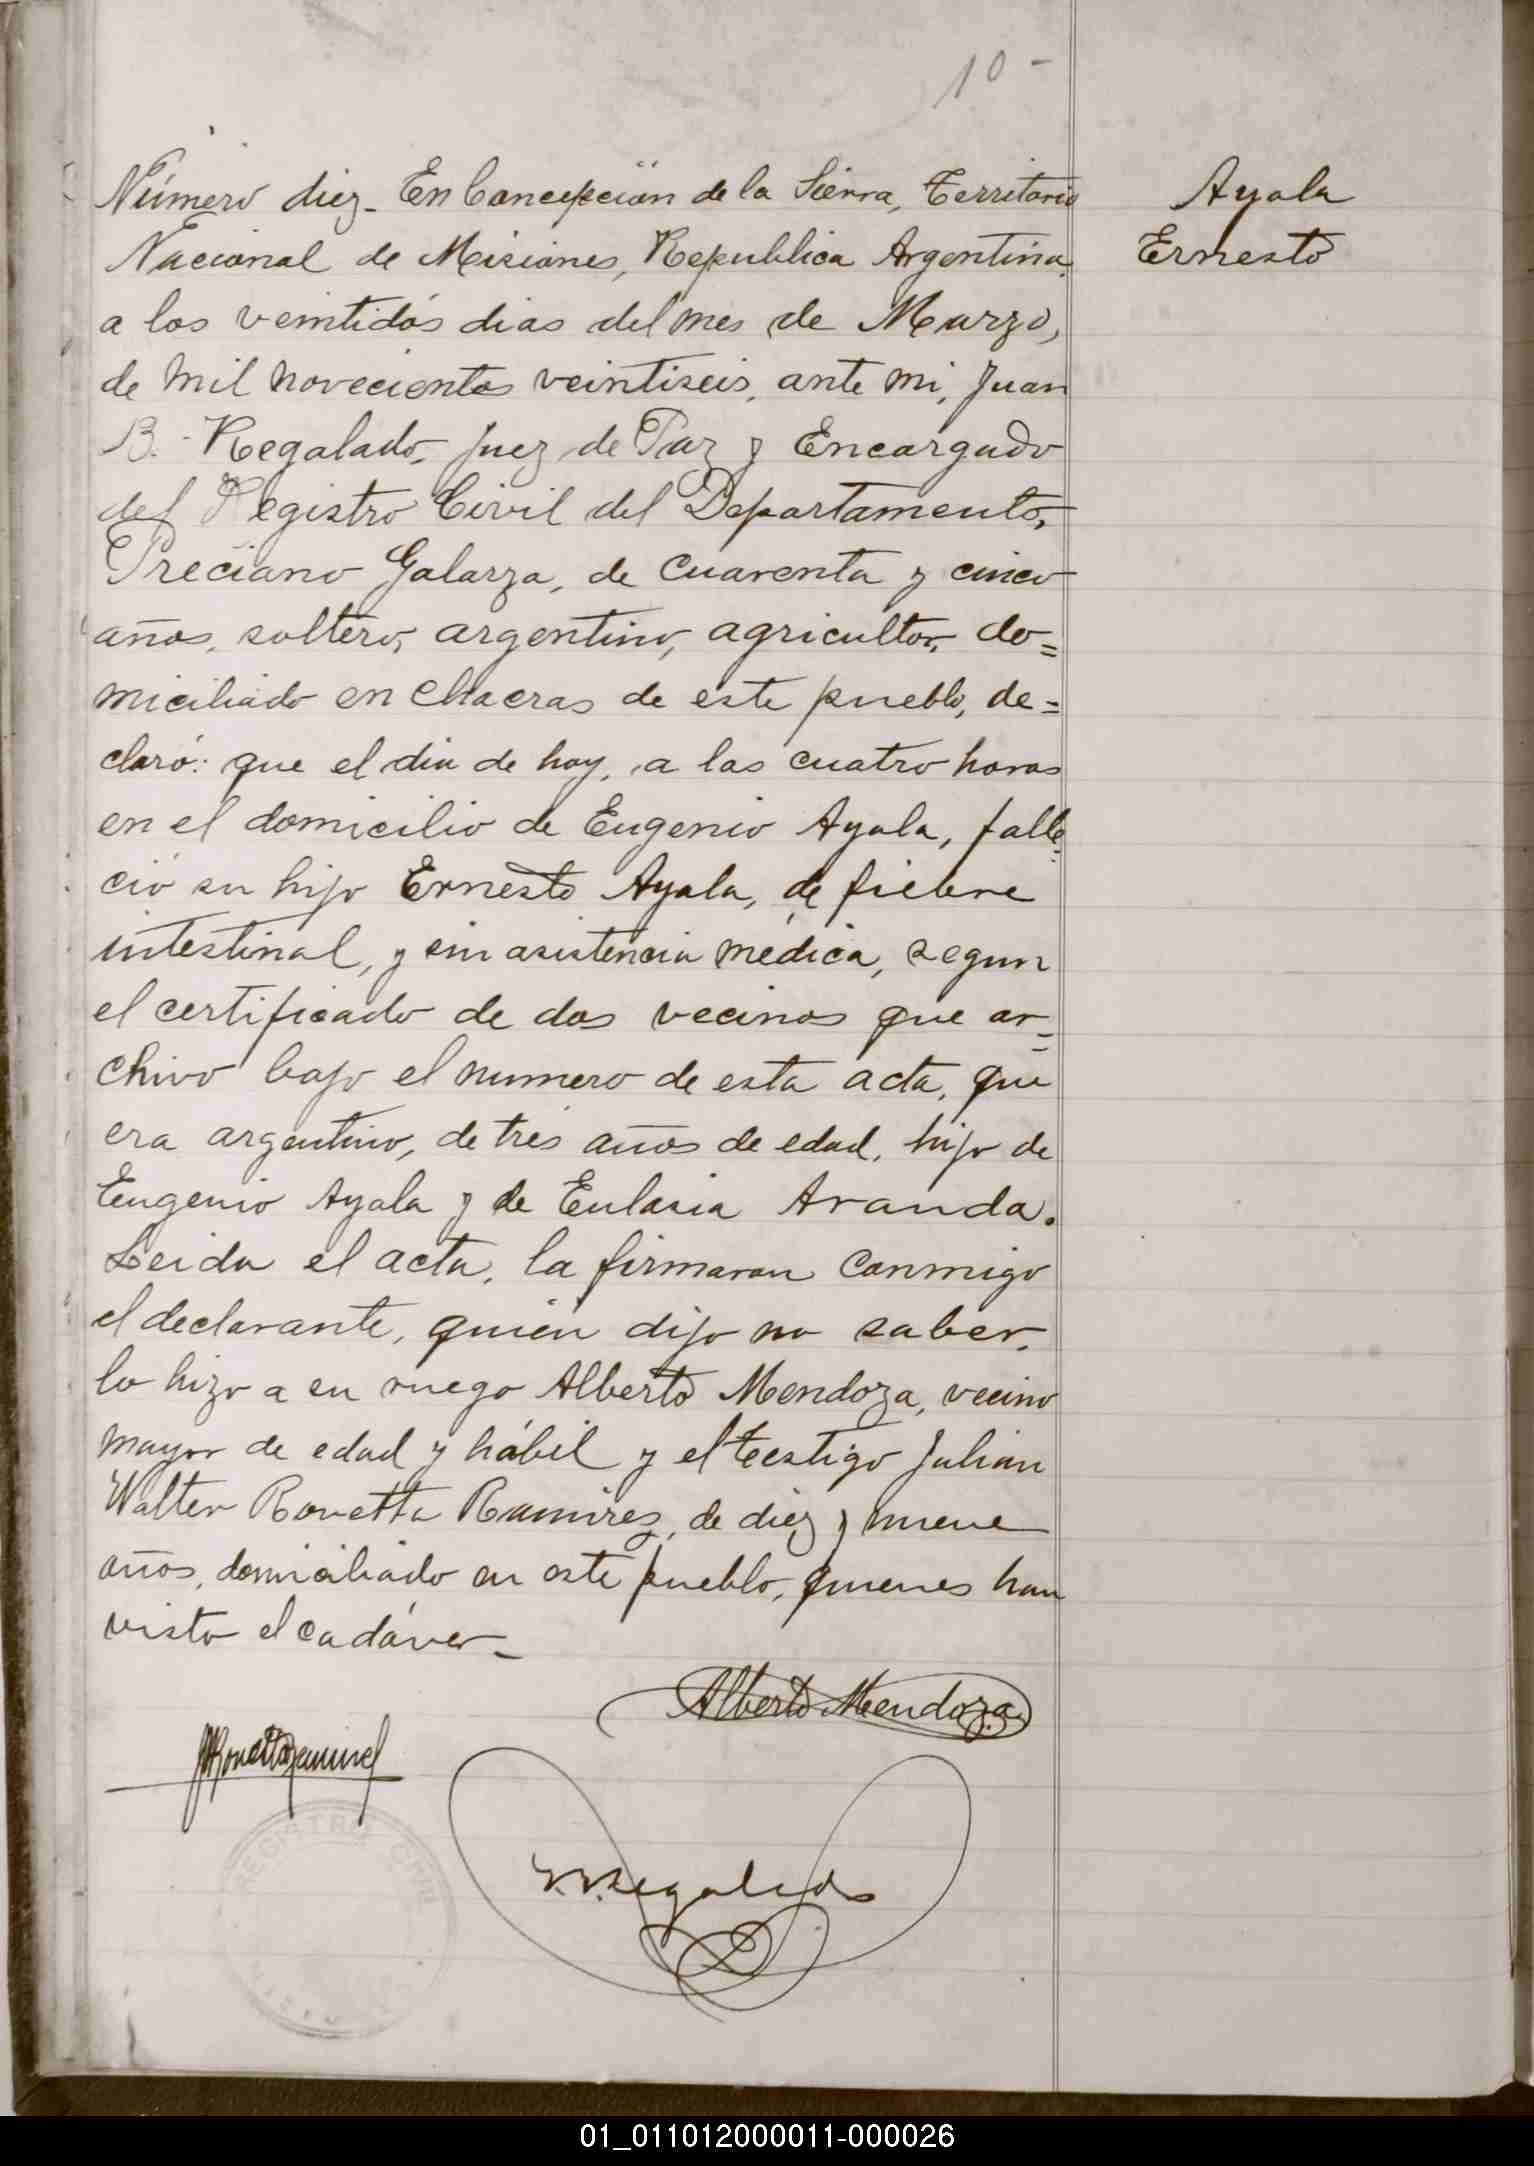 10-
Número diez. En Concepción de la Sierra, Territorio
Nacional de Misiones, Republica Argentina,
a los veintidós dias del mes de Marzo,
de mil novecientos veintiseis, ante mi, Juan
B. Regalado, Juez de Paz y Encargado
del Registro Civil del Departamento,
Preciano Galarza, de cuarenta y cinco
años, soltero, argentino, agricultor, do=
miciliado en chacras de este pueblo, de=
claró: que el dia de hoy, a las cuatro horas
en el domicilio de Eugenio Ayala, falle=
ció su hijo Ernesto Ayala, de fiebre
intestinal, y sin asistencia médica, segun
el certificado de dos vecinos que ar=
chivo bajo el numero de esta acta, que
era argentino, de tres años de edad, hijo de
Eugenio Ayala y de Eulasia Aranda.
Leida el acta, la firmaron conmigo
el declarante, quien dijo no saber,
lo hizo a su ruego Alberto Mendoza, vecino
mayor de edad y hábil y el testigo Julian
Walter Rovetta Ramirez, de diez y nueve
años, domiciliado en este pueblo, quienes han
visto el cadáver.
Ayala
Ernesto
Alberto Mendoza
Regalado
REGISTRO CIVIL
01_011012000011-000026